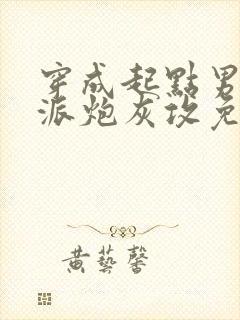 穿成起點男
派炮灰攻免
黃藝馨